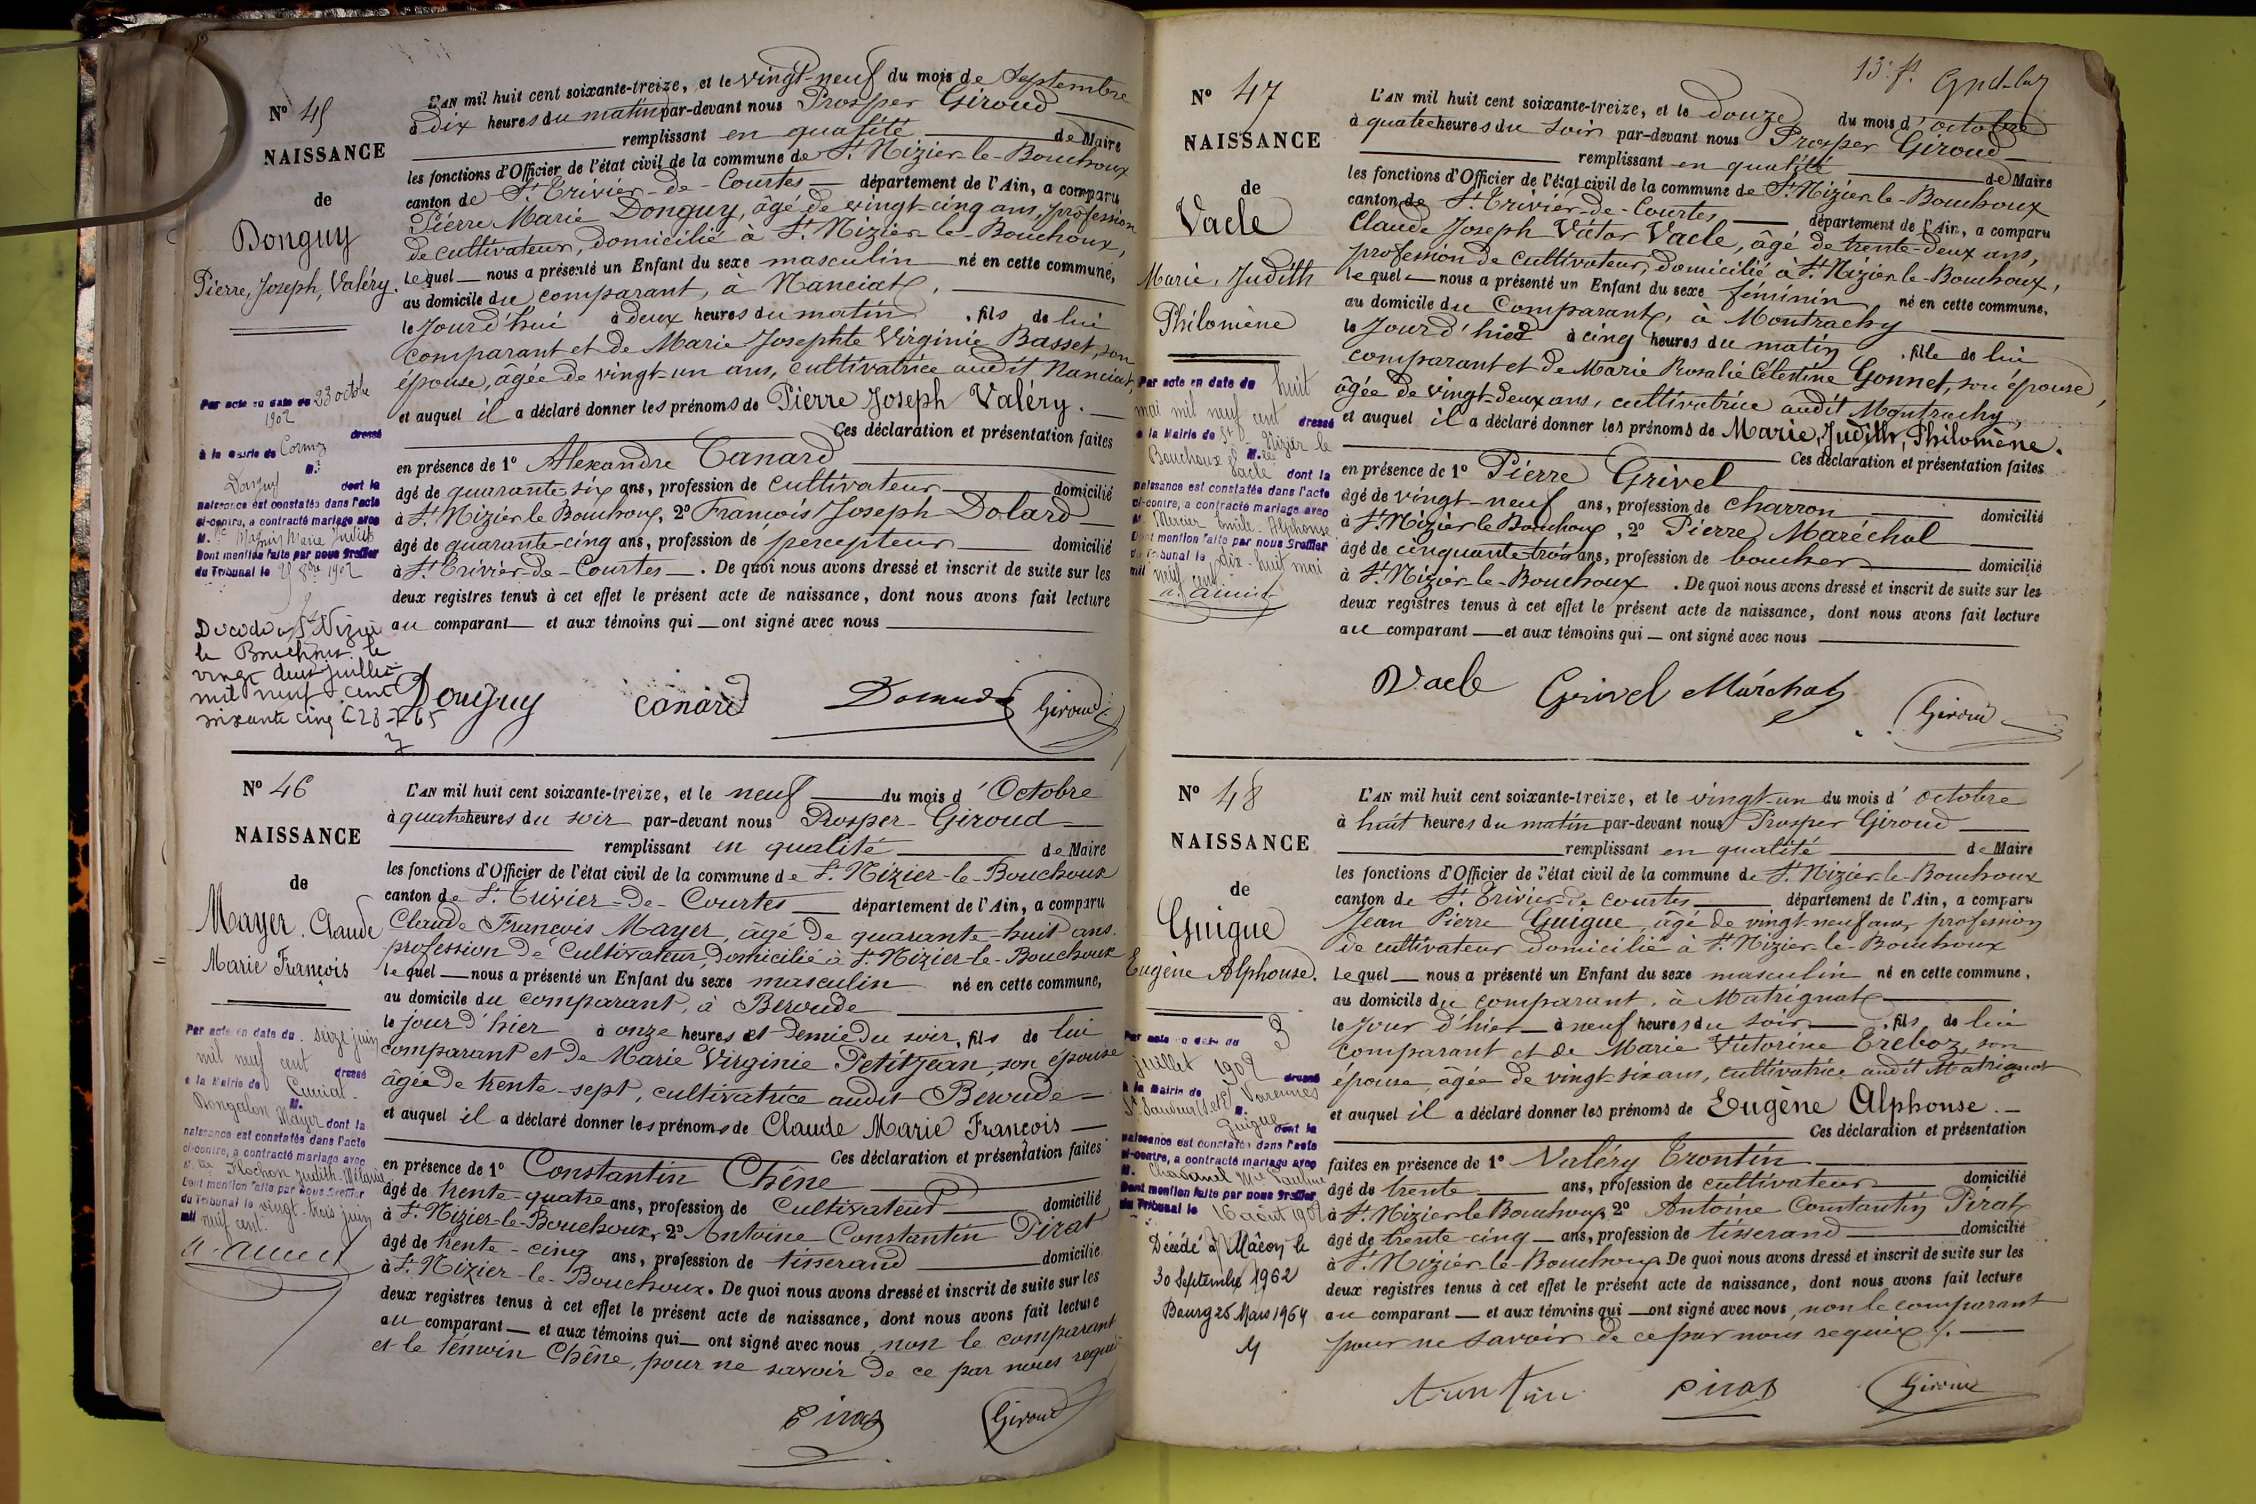 Nº 45
NAISSANCE
de
Donguy
Pierre, Joseph, Valéry.
Par acte en date du 23 octobre
1902
dressé
à la Mairie de Cormoz
M.
Donguy
dont la
naissance est constatée dans l'acte
ci-contre, a contracté mariage avec
M. Marie Judith
Dont mention faite par nous Greffier
du Tribunal le 1902
Décédé à St Nizier
le Bouchoux le
vingt deux juillet
mil neuf cent
soixante cinq
L'AN mil huit cent soixante-treize, et le vingt-neuf du mois de Septembre
à dix heures du matin par-devant nous Prosper Giroud
remplissant en qualité de Maire
les fonctions d'Officier de l'état civil de la commune de St Nizier-le-Bouchoux
canton de St Trivier-de-Courtes département de l'Ain, a comparu
Pierre Marie Donguy, âgé de vingt-cinq ans, profession
de cultivateur, domicilié à St Nizier-le-Bouchoux,
lequel nous a présenté un Enfant du sexe masculin né en cette commune,
au domicile du comparant, à Nanciat,
le Jourd'hui à deux heures du matin, fils de lui
comparant et de Marie Josephte Virginie Basset, son
épouse, âgée de vingt-un ans, cultivatrice audit Nanciat,
et auquel il a déclaré donner les prénoms de Pierre Joseph Valéry.
Ces déclaration et présentation faites
en présence de 1º Alexandre Canard
âgé de quarante six ans, profession de cultivateur domicilié
à St Nizier le Bouchoux, 2º François Joseph Dolard
âgé de quarante-cinq ans, profession de percepteur domicilié
à St Trivier-de-Courtes. De quoi nous avons dressé et inscrit de suite sur les
deux registres tenus à cet effet le présent acte de naissance, dont nous avons fait lecture
au comparant et aux témoins qui ont signé avec nous
Donguy Canard Giroud
Nº 46
NAISSANCE
de
Mayer. Claude
Marie François
Par acte en date du seize juin
mil neuf cent
dressé
à la Mairie de Curciat-
Dongalon M. Mayer dont la
naissance est constatée dans l'acte
ci-contre, a contracté mariage avec
M. lle Flochon Judith Mélanie
Dont mention faite par nous Greffier
du Tribunal le vingt-trois juin
mil neuf cent.
L'AN mil huit cent soixante-treize, et le neuf du mois d'Octobre
à quatre heures du soir par-devant nous Prosper-Giroud
remplissant en qualité de Maire
les fonctions d'Officier de l'état civil de la commune de St Nizier-le-Bouchoux
canton de St Trivier-de-Courtes département de l'Ain, a comparu
Claude François Mayer, âgé de quarante-huit ans.
profession de cultivateur, domicilié à St Nizier-le-Bouchoux
lequel nous a présenté un Enfant du sexe masculin né en cette commune,
au domicile du comparant, à Beroude
le jour d'hier à onze heures et demie du soir, fils de lui
comparant et de Marie Virginie Petitjean, son épouse
âgée de trente-sept, cultivatrice audit Beroude
et auquel il a déclaré donner les prénoms de Claude Marie François
Ces déclaration et présentation faites
en présence de 1º Constantin Chêne
âgé de trente-quatre ans, profession de cultivateur domicilié
à St Nizier-le-Bouchoux, 2º Antoine Constantin Pirat
âgé de trente-cinq ans, profession de tisserand domicilié
à St Nizier-le-Bouchoux. De quoi nous avons dressé et inscrit de suite sur les
deux registres tenus à cet effet le présent acte de naissance, dont nous avons fait lecture
au comparant et aux témoins qui ont signé avec nous, non le comparant
et le témoin Chêne, pour ne savoir de ce par nous requis
Pirat Giroud
13e f.
Nº 47
NAISSANCE
de
Vacle
Marie, Judith
Philomène
Par acte en date du huit
mai mil neuf cent
dressé
à la Mairie de St Nizier le
Bouchoux M. lle Vacle dont la
naissance est constatée dans l'acte
ci-contre, a contracté mariage avec
M. Mercier Emile Alphonse
Dont mention faite par nous Greffier
du Tribunal le dix-huit mai
mil neuf cent
L'AN mil huit cent soixante-treize, et le douze du mois d'octobre
à quatre heures du soir par-devant nous Prosper Giroud
remplissant en qualité de Maire
les fonctions d'Officier de l'état civil de la commune de St Nizier-le-Bouchoux
canton de St Trivier-de-Courtes département de l'Ain, a comparu
Claude Joseph Victor Vacle, âgé de trente-deux ans,
profession de cultivateur, domicilié à St Nizier-le-Bouchoux,
lequel nous a présenté un Enfant du sexe féminin né en cette commune,
au domicile du comparant, à Montrachy
le Jour d'hier à cinq heures du matin, fille de lui
comparant et de Marie Rosalie Célestine Gonnet, son épouse,
âgée de vingt-deux ans, cultivatrice audit Montrachy,
et auquel il a déclaré donner les prénoms de Marie, Judith, Philomène.
Ces déclaration et présentation faites
en présence de 1º Pierre Grivel
âgé de vingt-neuf ans, profession de charron domicilié
à St Nizier le Bouchoux, 2º Pierre Maréchal
âgé de cinquante-trois ans, profession de boucher domicilié
à St Nizier-le-Bouchoux. De quoi nous avons dressé et inscrit de suite sur les
deux registres tenus à cet effet le présent acte de naissance, dont nous avons fait lecture
au comparant et aux témoins qui ont signé avec nous
Vacle Grivel Maréchal Giroud
Nº 48
NAISSANCE
de
Guigue
Eugène Alphonse.
Par acte en date du 3
juillet 1902
dressé
à la Mairie de Varennes
St Sauveur M.
Guigue dont la
naissance est constatée dans l'acte
ci-contre, a contracté mariage avec
M. Chavanel Mie Pauline
Dont mention faite par nous Greffier
du Tribunal le 16 août 1902
Décédé à Mâcon le
30 Septembre 1962
Bourg 26 Mars 1964
L'AN mil huit cent soixante-treize, et le vingt-un du mois d'octobre
à huit heures du matin par-devant nous Prosper Giroud
remplissant en qualité de Maire
les fonctions d'Officier de l'état civil de la commune de St Nizier-le-Bouchoux
canton de St Trivier-de-Courtes département de l'Ain, a comparu
Jean Pierre Guigue, âgé de vingt-neuf ans, profession
de cultivateur domicilié à St Nizier-le-Bouchoux
lequel nous a présenté un Enfant du sexe masculin né en cette commune,
au domicile du comparant, à Matrignat
le Jour d'hier à neuf heures du soir, fils de lui
comparant et de Marie Victorine Tréboz, son
épouse, âgée de vingt-six ans, cultivatrice audit Matrignat
et auquel il a déclaré donner les prénoms de Eugène Alphonse.
Ces déclaration et présentation
faites en présence de 1º Valéry Trontin
âgé de trente ans, profession de cultivateur domicilié
à St Nizier le Bouchoux, 2º Antoine Constantin Pirat
âgé de trente-cinq ans, profession de tisserand domicilié
à St Nizier-le-Bouchoux. De quoi nous avons dressé et inscrit de suite sur les
deux registres tenus à cet effet le présent acte de naissance, dont nous avons fait lecture
au comparant et aux témoins qui ont signé avec nous, non le comparant
pour ne savoir de ce par nous requis
Trontin Pirat Giroud